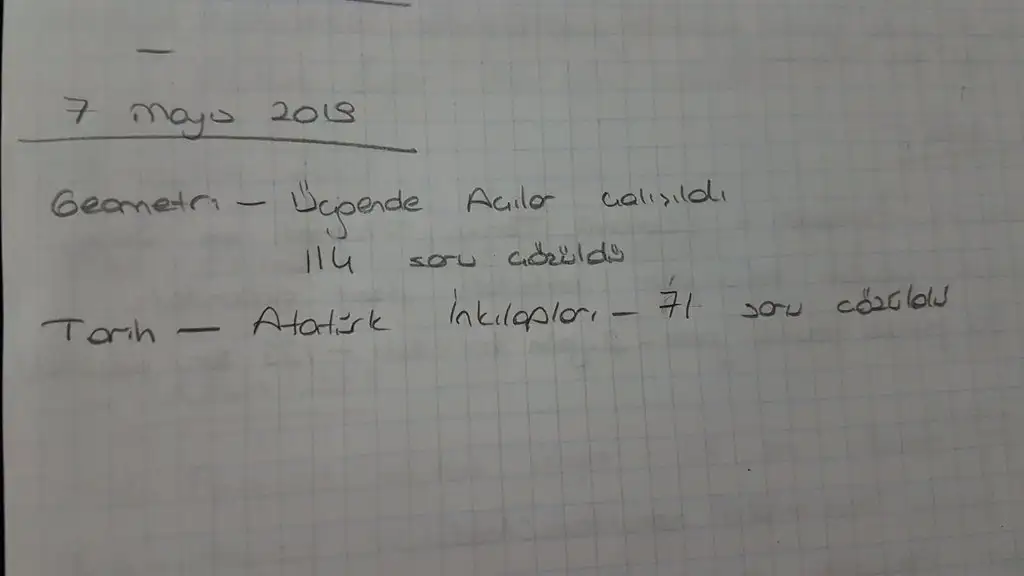 7 Mayıs 2019
Geometri - Üçgende Açılar çalışıldı
114 soru çözüldü
Tarih - Atatürk İnkılapları - 71 soru çözüldü